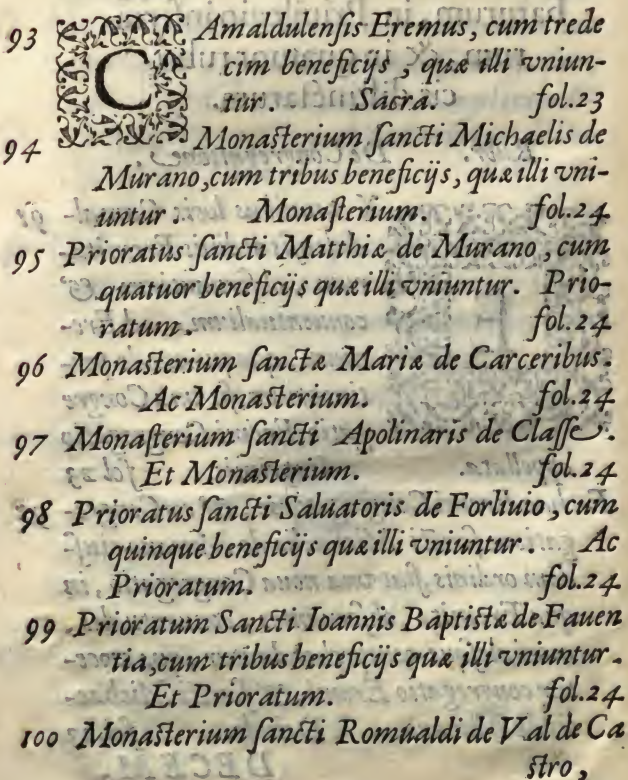 93 CAmaldulenſis Eremus, cum trede
cim beneficijs, quæ illi vniun-
tur. Sacra. fol.23
94 Monaſterium ſancti Michaelis de
Murano, cum tribus beneficijs, quæ illi vni-
untur. Monaſterium. fol.24
95 Prioratus ſancti Matthiæ de Murano, cum
quatuor beneficijs quæ illi vniuntur. Prio-
ratum. fol.24
96 Monaſterium ſanctæ Mariæ de Carceribus.
Ac Monaſterium. fol.24
97 Monaſterium ſancti Apolinaris de Claſſe.
Et Monaſterium. fol.24
98 Prioratus ſancti Saluatoris de Forliuio, cum
quinque beneficijs quæ illi vniuntur. Ac
Prioratum. fol.24
99 Prioratum Sancti Ioannis Baptiſtæ de Fauen
tia, cum tribus beneficijs quæ illi vniuntur.
Et Prioratum. fol.24
100 Monaſterium ſancti Romualdi de Val de Ca
ſtro,